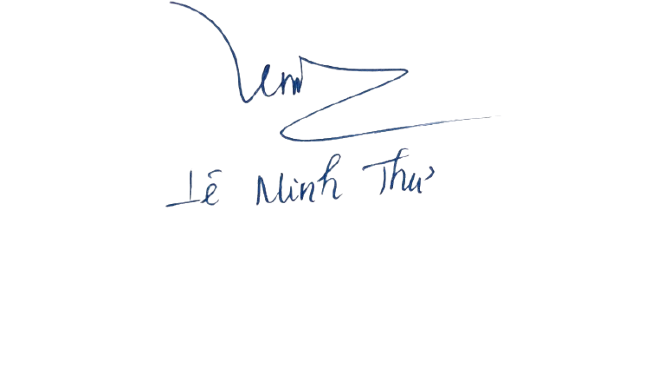 Lê Minh Thư